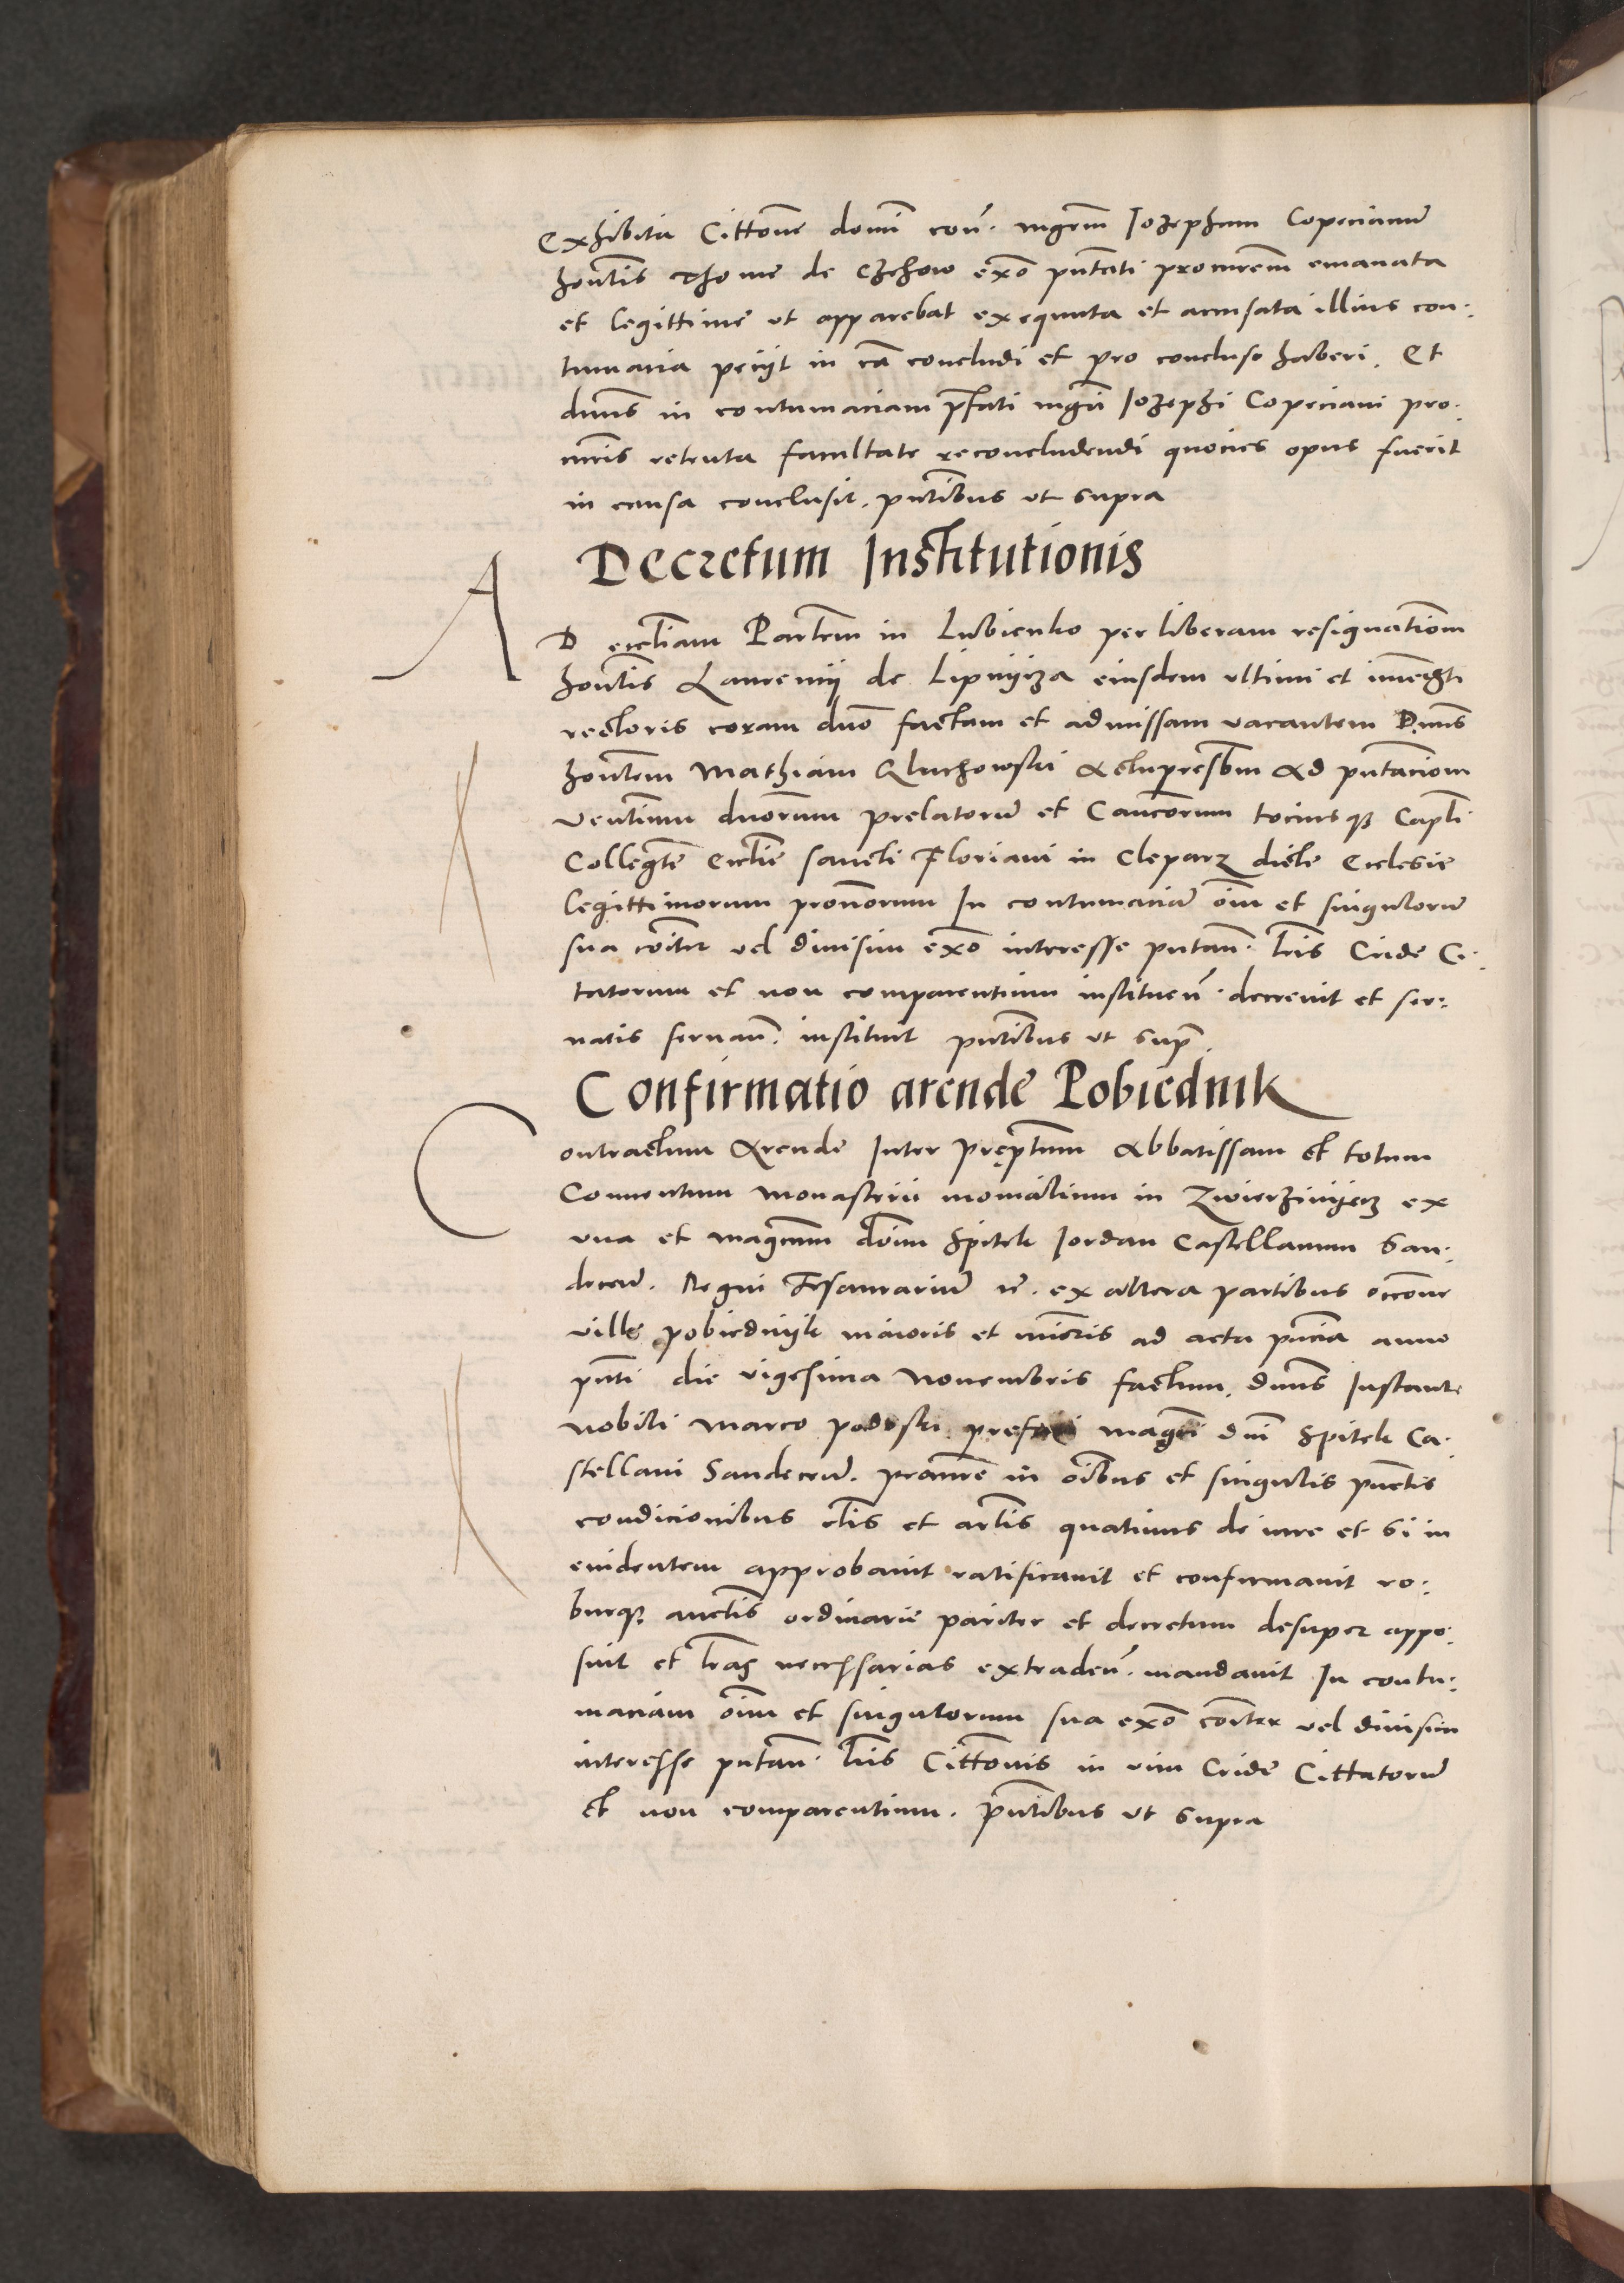 Exhibita Cittone domi con. mgrm Iozephum Copecianum
hontis Thome de Czchow exo pntati procurem emanata
et legittime ut apparebat exequuta et acusata illius con-
tumacia peciit in ca concludi et pro concluso haberi. Et
dnus in contumaciam pfati mgri Iozephi Copeciani pro-
curis retenta facultate reconcludendi quocies opus fuerit
in causa conclusit. pntibus ut supra
Decretum Institutionis
AD eccliam Parlem in Lubienko per liberam resignationem
hontis Laurencij de Lipnijcza eiusdem ultimi et immedti
rectoris coram duo factam et admissam vacantem Dnus
hontem Mathiam Gluchowski actupresbrm ad pntacionem
ventium dnorum prelatorum et Canicorum tociusque Capli
Collegte Ecclie sancti Floriani in Cleparz dicte Ecclesie
legittimorum pronorum In contumaciam oim et singulorum
sua coiter vel divisim exo interesse putan. lris Cride Ci-
tatorum et non comparentium instituen. decrevit et ser-
vatis servan. instituit pntibus ut sup.
Confirmatio arende Pobiednik
Contractum Arende Inter Preptam Abbatissam et totum
Conventum monasterii monialium in Zwierzinijecz ex
una et magcum doim Spitek Iordan Castellanum San-
decen. Regni Thesaurarium etc. ex altera partibus occone
ville pobiednijk maioris et minoris ad acta pncia anno
pnti die vigesima Novembris factum. dnus Instante
nobili Marco podoski prefati magci dni Spitek Ca-
stellani Sandecen. procure in oibus et singulis punctis
condicionibus clis et artlis quatinus de iure et si in
evidentem approbavit ratificavit et confirmavit ro-
burque auctis ordinarie pariter et decretum desuper appo-
suit et lras necessarias extraden. mandavit In contu-
maciam oim et singulorum sua exo coiter vel divisim
interesse putan. lris Cittonis in vim Cride Cittatorum
et non comparentium. pntibus ut supra